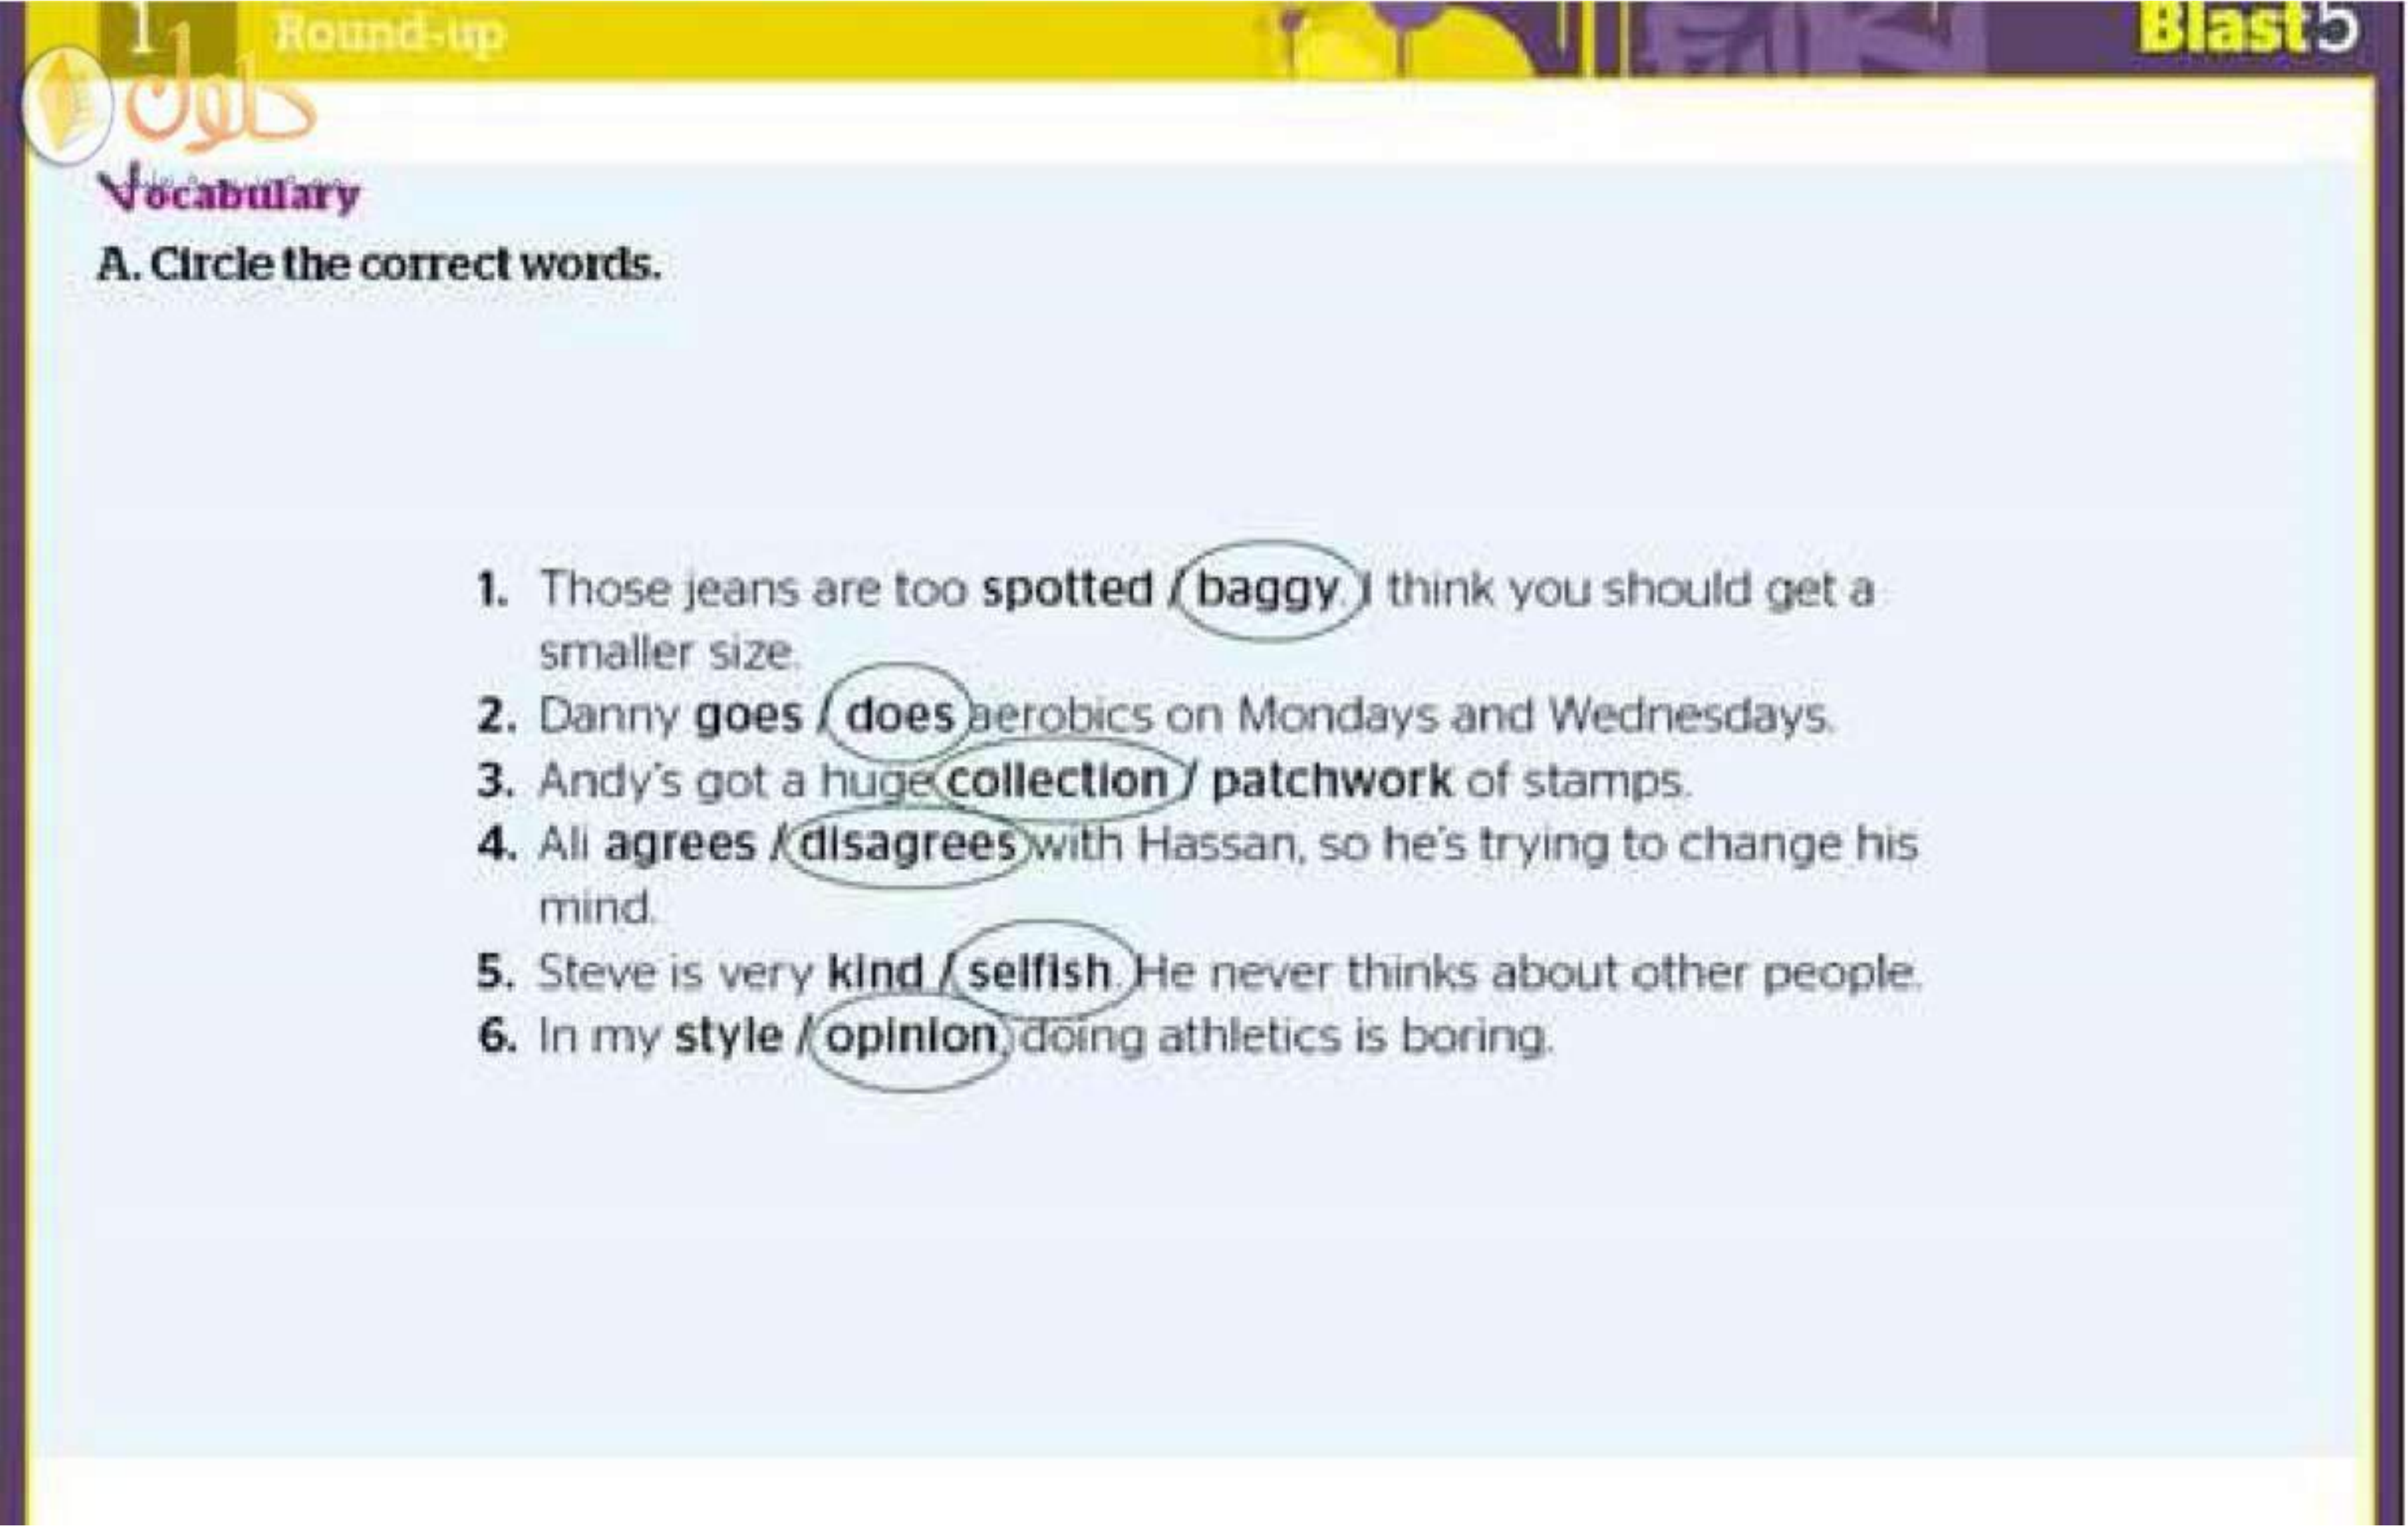 1 Round-up
Blast5
حلول
Vocabulary
A. Circle the correct words.
1. Those jeans are too spotted / baggy. I think you should get a
smaller size.
2. Danny goes / does aerobics on Mondays and Wednesdays.
3. Andy's got a huge collection / patchwork of stamps.
4. Ali agrees / disagrees with Hassan, so he's trying to change his
mind.
5. Steve is very kind / selfish. He never thinks about other people.
6. In my style / opinion, doing athletics is boring.